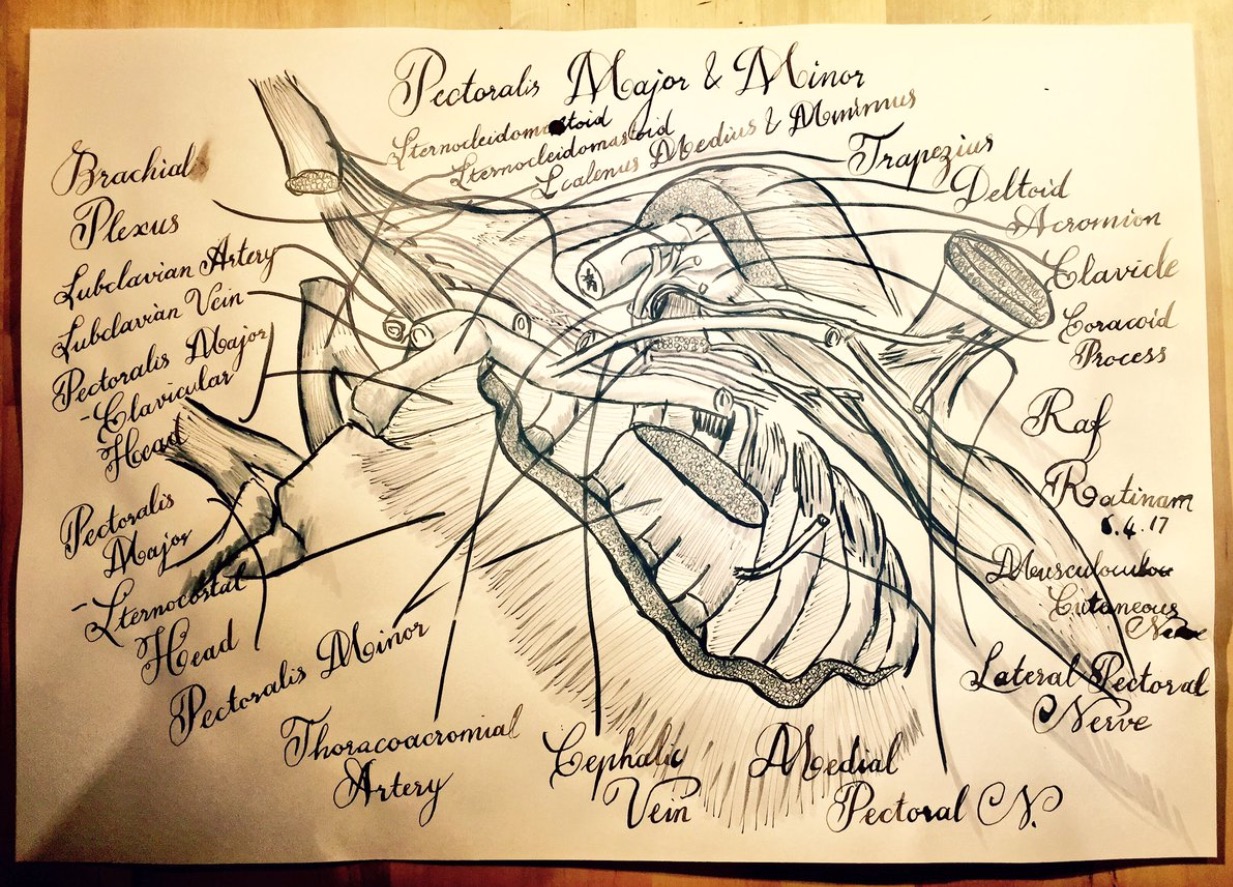 Pectoralis Major & Minor
Sternocleidomastoid
Sternocleidomastoid
Scalenus Medius & Minimus
Trapezius
Deltoid
Acromion
Clavicle
Coracoid
Process
Raf
Ratinam
6.4.17
Cutaneous
Nerve
Lateral Pectoral
Nerve
Medial
Pectoral N.
Cephalic
Vein
Thoracoacromial
Artery
Pectoralis Minor
Brachial
Plexus
Subclavian Artery
Subclavian Vein
Pectoralis Major
-Clavicular
Head
Pectoralis
Major
-Sternocostal
Head